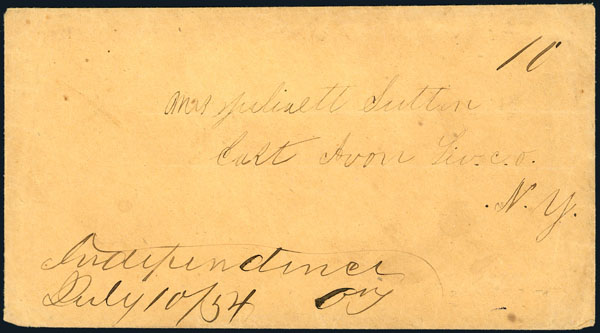 10
Mrs Juliaett Sutton
East Avon Liv.c.o.
N.Y.
Independence
July 10/54 OY